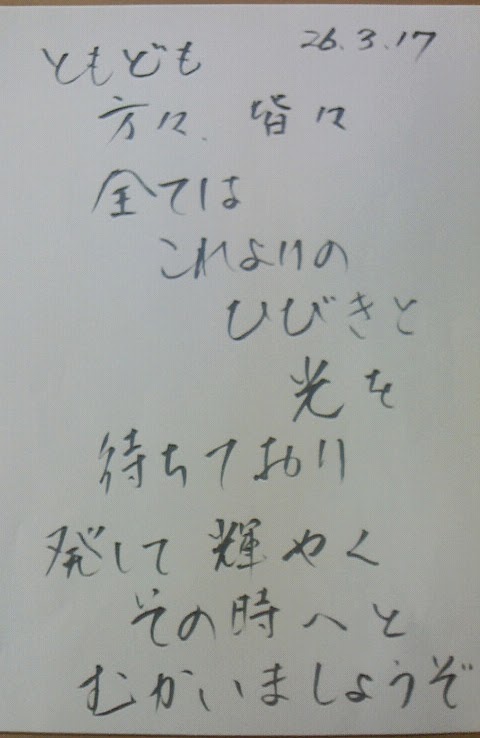 26.3.17
ともども
方々、皆々
全ては
これよりの
ひびきと
光を
待ちており
発して輝やく
その時へと
むかいましょうぞ